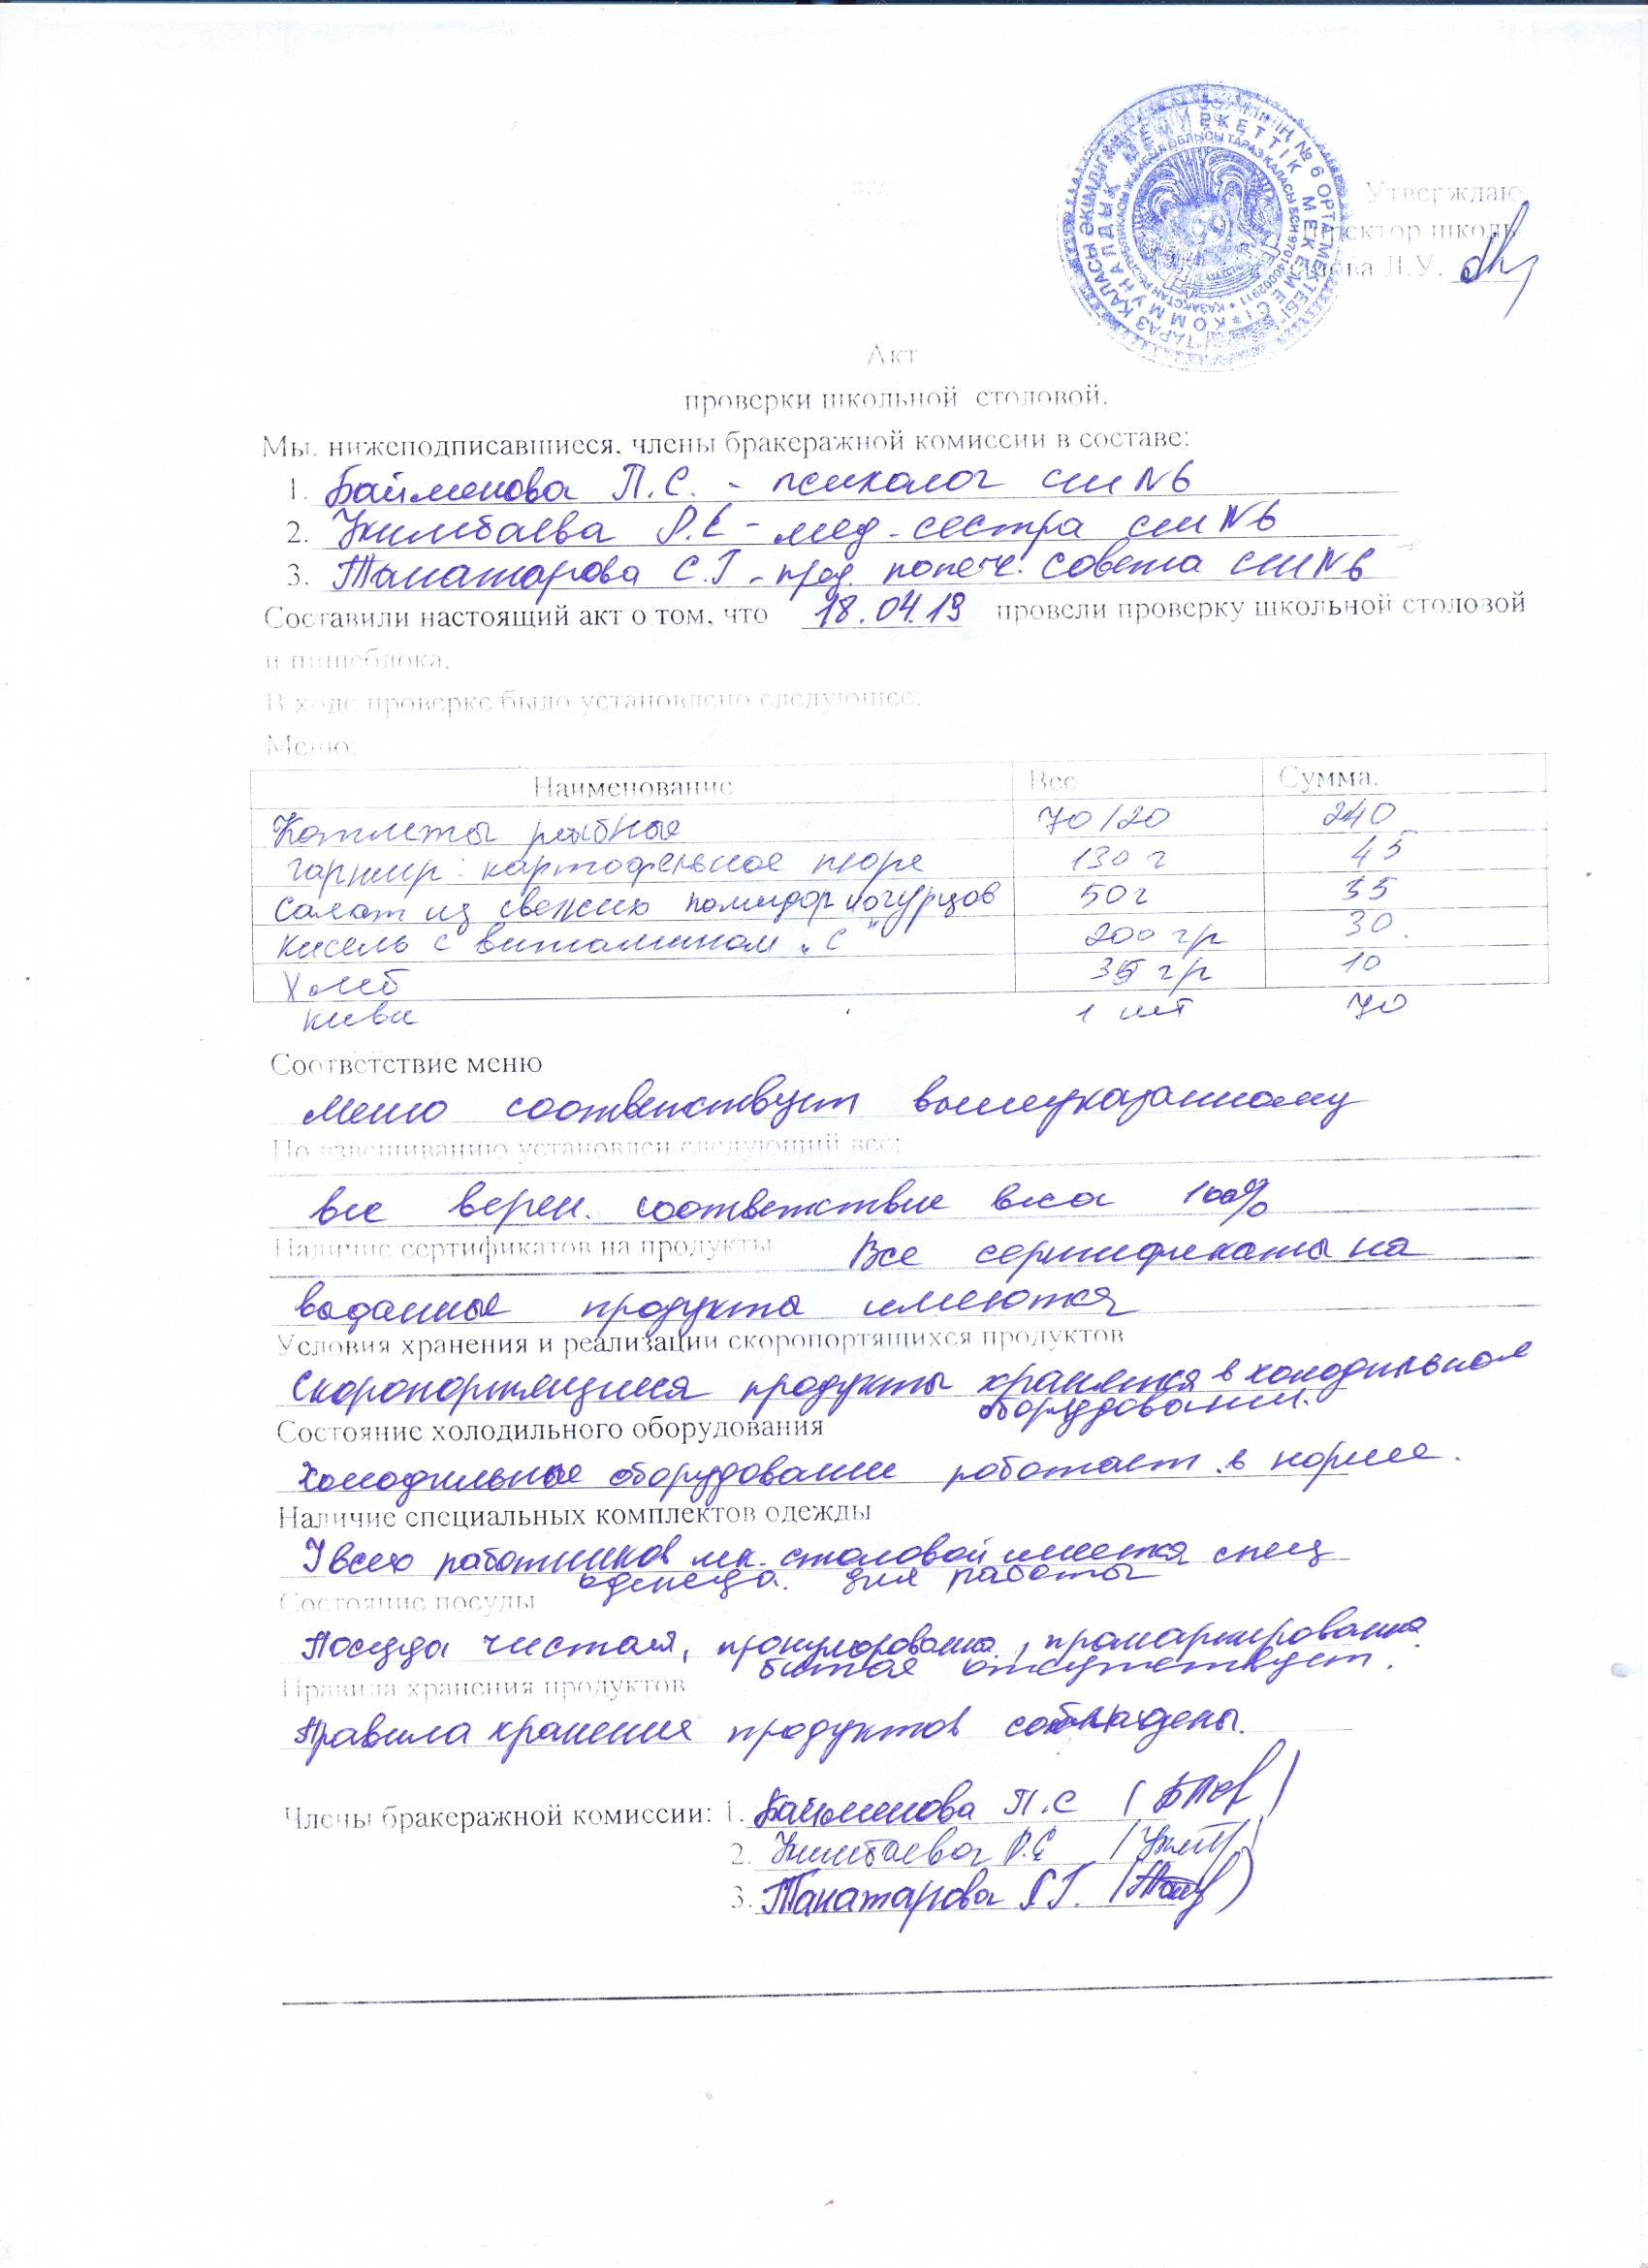 Утверждаю
Директор школы
Л.У.
Акт
проверки школьной столовой.
Мы, нижеподписавшиеся, члены бракеражной комиссии в составе:
1. Байменова П.С. - психолог сш N6
2. Укимбаева Р.Е - мед-сестра сш N6
3. Танатарова С.Г - пред. попеч. совета сш N6
Составили настоящий акт о том, что 18.04.19 провели проверку школьной столовой
и пищеблока.
В ходе проверке было установлено следующее.
Меню:
Наименование Вес Сумма.
Котлеты рыбные 70/20 240
гарнир: картофельное пюре 130 г 45
Салат из свежих помидор и огурцов 50 г 35
кисель с витамином "С" 200 гр 30.
Хлеб 35 гр 10
киви 1 шт 70
Соответствие меню
Меню соответствует вышеуказанному
По взвешиванию установлен следующий вес:
вес верен. соответствие веса 100%
Наличие сертификатов на продукты Все сертификаты на
выданные продукты имеются
Условия хранения и реализации скоропортящихся продуктов
Скоропортящиеся продукты хранятся в холодильном
оборудовании.
Состояние холодильного оборудования
Холодильное оборудование работает в норме.
Наличие специальных комплектов одежды
У всех работников шк. столовой имеется спец
одежда. для работы
Состояние посуды
Посуда чистая, пронумерована, промаркирована
битая отсутствует.
Правила хранения продуктов
Правила хранения продуктов соблюдены.
Члены бракеражной комиссии: 1. Байменова П.С
2. Укимбаева Р.Е
3. Танатарова С.Г.